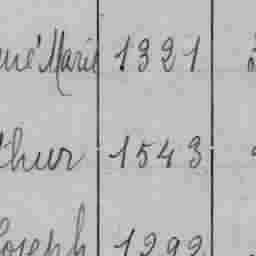 ené Marie 1321
thur 1543
Joseph 1292